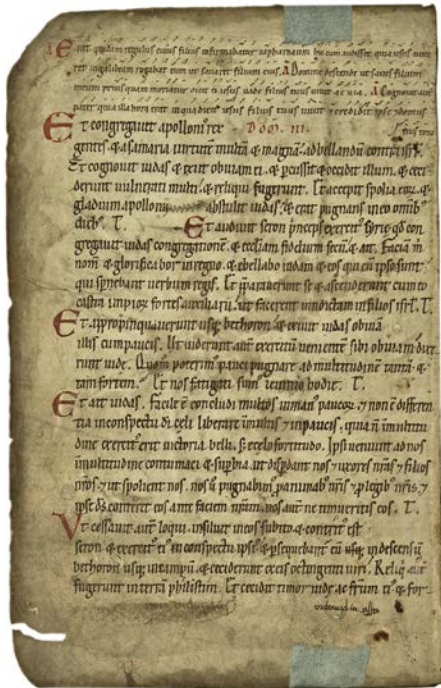 Erat quidam regulus cuius filius infirmabatur capharnaum hic cum audisset quia iesus veni
ret in galileam rogabat eum ut sanaret filium eius. A Domine descende ut sanes filium
meum priusquam moriatur dicit ei iesus vade filius tuus vivit ae via. A Cognovit aut
pater quia illa hora erat in qua dixit iesus filius tuus vivit & credidit ipse & domus
Et congregavit apolloni rex Dom. III. eius tota
gentes. & a samaria virtutē multā & magnā. ad bellandū contra isrl.
Et cognovit iudas & exiit obviam ei. & percussit & occidit illum. & ceci
derunt vulnerati multi. & reliqui fugerunt. Et accepit spolia eoꝝ. &
gladium apollonii abstulit iudas. & erat pugnans in eo omīb;
dieb;. T. Et audivit seron princeps exercit' syrie qđ con
gregavit iudas congregationē. & eccłiam fidelium secū. & ait. Faciā m̄
nom̄ & glorificabor in regno. & debellabo iudam & eos qui cū ipso sunt
qui spnebant verbum regis. Et p̄paraverunt se & ascenderunt cum eo
castra impioꝝ fortes auxiliarii. ut facerent vindictam in filios isrl. T.
Et appropinquaverunt usq; bethoron. & exivit iudas obviā
illis cum paucis. Ut viderunt aut̄ exercitū venientē sibi obviam dixe
runt iude. Quom̄ poterim' pauci pugnare ad multitudinē tantā. &
tam fortem. Et nos fatigati sum' ieiunio hodie. T.
Et ait iudas. Facile ē concludi multos in man' paucoꝝ. & non ē differen
tia in conspectu di celi liberare in multis & in paucis. quia n̄ in multitu
dine exercit' erit victoria belli. s; e celo fortitudo. Ipsi veniunt ad nos
in multitudine contumaci & supbia. ut disp̄dant nos & uxores nr̄as & filios
nr̄os. & ut spolient nos. nos ū pugnabim' p̄ animab; nr̄is & p̄ legib; nr̄is. &
ipse dn̄s conteret eos ante faciem nr̄am. vos aut̄ ne timueritis eos. T.
Vt cessavit aut̄ loqui. insiluit in eos subito. & contrit' est
seron & exercit' ei' in conspectu ipsi'. & p̄sequebant' eū usq; in descensū
bethoron usq; in campū. & ceciderunt ex eis octingenti viri. Reliq' aut̄
fugerunt in terrā philistiim. Et cecidit timor iude ac fr̄um ei' & for